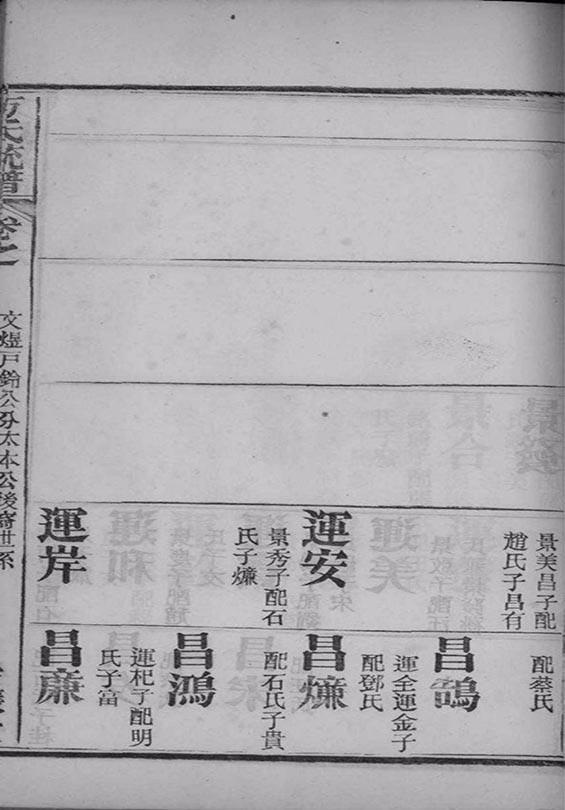 景美昌子配
趙氏子昌有
運安
景秀子配石
氏子燫
運岸
配蔡氏
昌鵠
運全運金子
配鄧氏
昌燫
配石氏子貴
昌鴻
運杞子配明
氏子富
昌廉
方氏統譜
卷之
文煜戶鈴公分太本公後裔世系